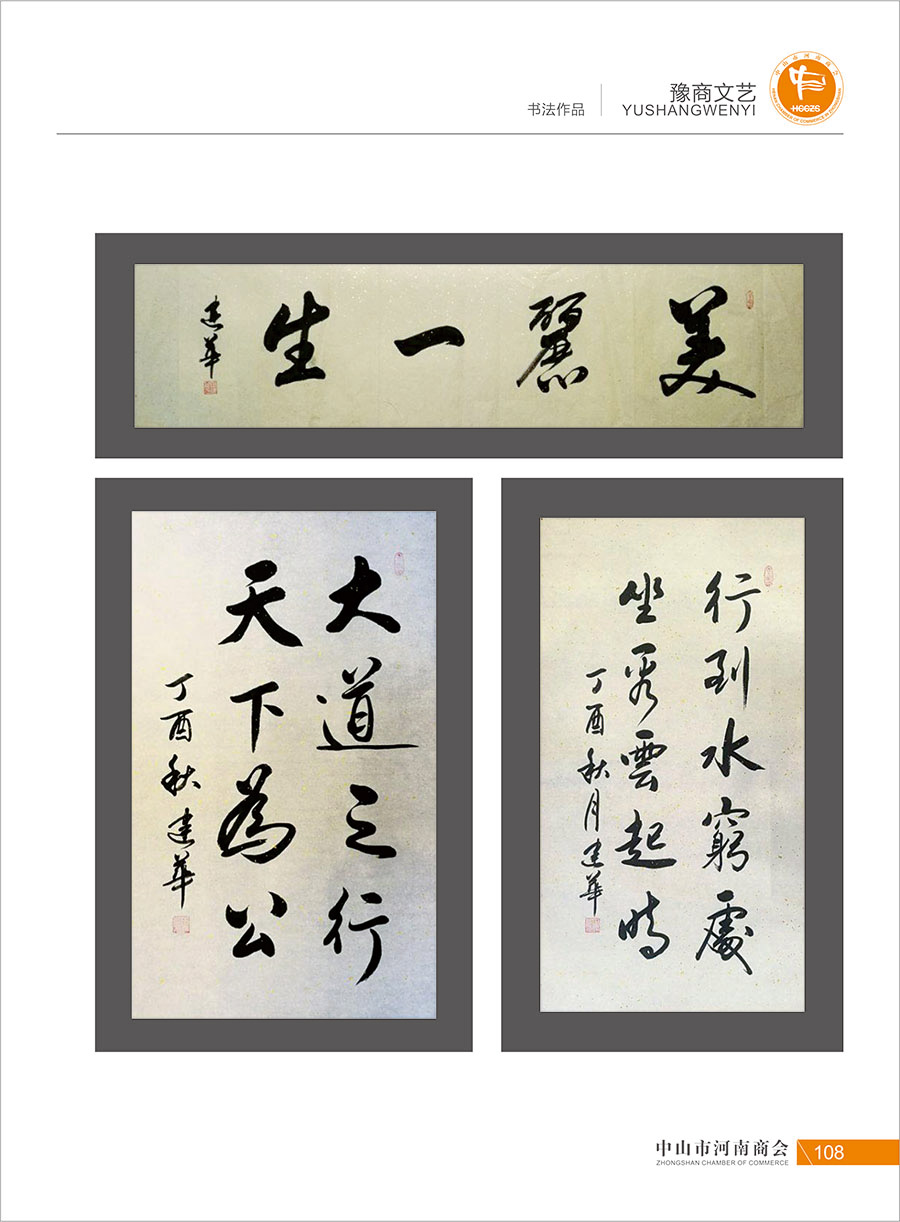 书法作品
豫商文艺
YUSHANGWENYI
中山市河南商会
HCCZS
HENAN CHAMBER OF COMMERCE IN ZHONGSHAN
美麗一生
建華
大道之行
天下為公
丁酉秋建華
行到水窮處
坐看雲起時
丁酉秋月建華
中山市河南商会
ZHONGSHAN CHAMBER OF COMMERCE
108